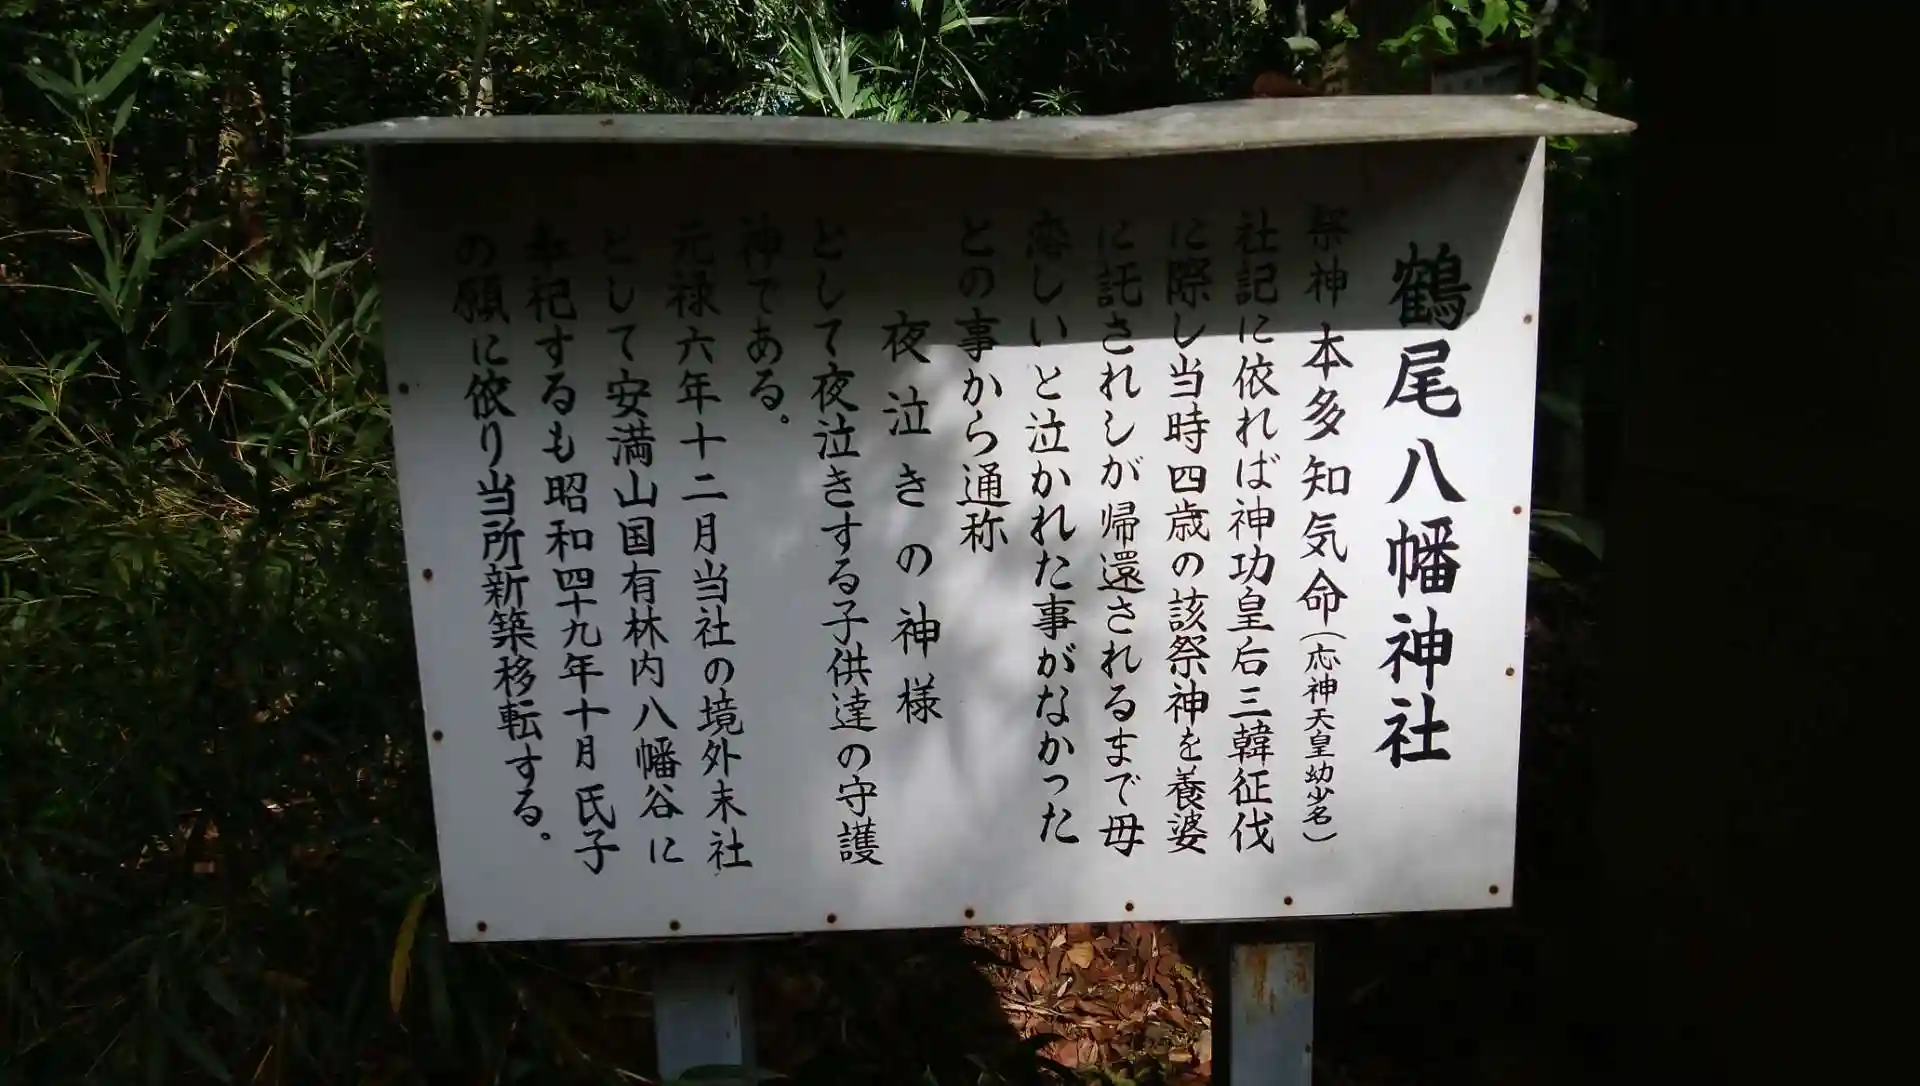 鶴尾八幡神社
祭神 本多知気命(応神天皇幼少名)
社記に依れば神功皇后三韓征伐
に際し当時四歳の該祭神を養婆
に託されしが帰還されるまで母
恋しいと泣かれた事がなかった
との事から通称
夜泣きの神様
として夜泣きする子供達の守護
神である。
元禄六年十二月当社の境外末社
として安満山国有林内八幡谷に
奉祀するも昭和四十九年十月氏子
の願に依り当所新築移転する。